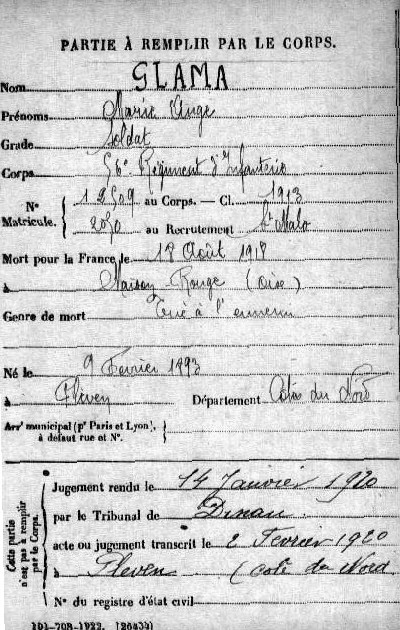 PARTIE À REMPLIR PAR LE CORPS.
Nom GLAMA
Prénoms Marie Ange
Grade Soldat
Corps 56e Régiment d'Infanterie
No Matricule. 12509 au Corps. — Cl. 1913
2050 au Recrutement St Malo
Mort pour la France le 18 Août 1918
à Maison Rouge (Oise)
Genre de mort Tué à l'ennemi
Né le 9 Fevrier 1893
à Pleven Département Côtes du Nord
Arrt municipal (pr Paris et Lyon),
à défaut rue et No.
Cette partie
n'est pas à remplir
par le Corps.
Jugement rendu le 14 Janvier 1920
par le Tribunal de Dinan
acte ou jugement transcrit le 2 Fevrier 1920
à Pleven (cote du Nord
No du registre d'état civil
101-708-1922. [26434]